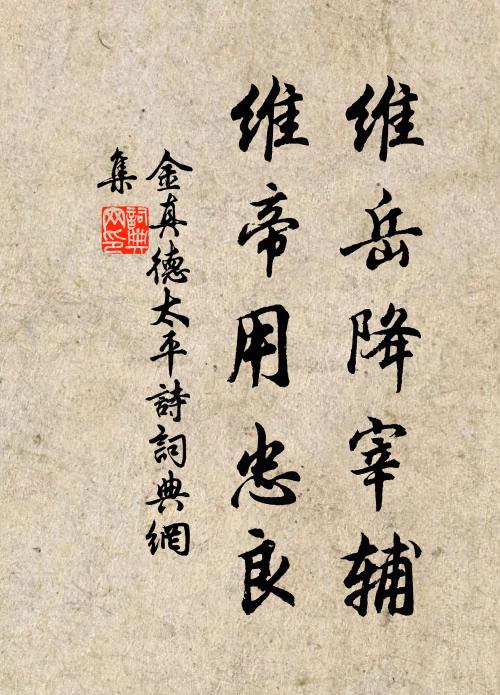 维岳降宰辅
维帝用忠良
金真德太平詩詞典網
集
詞典網印